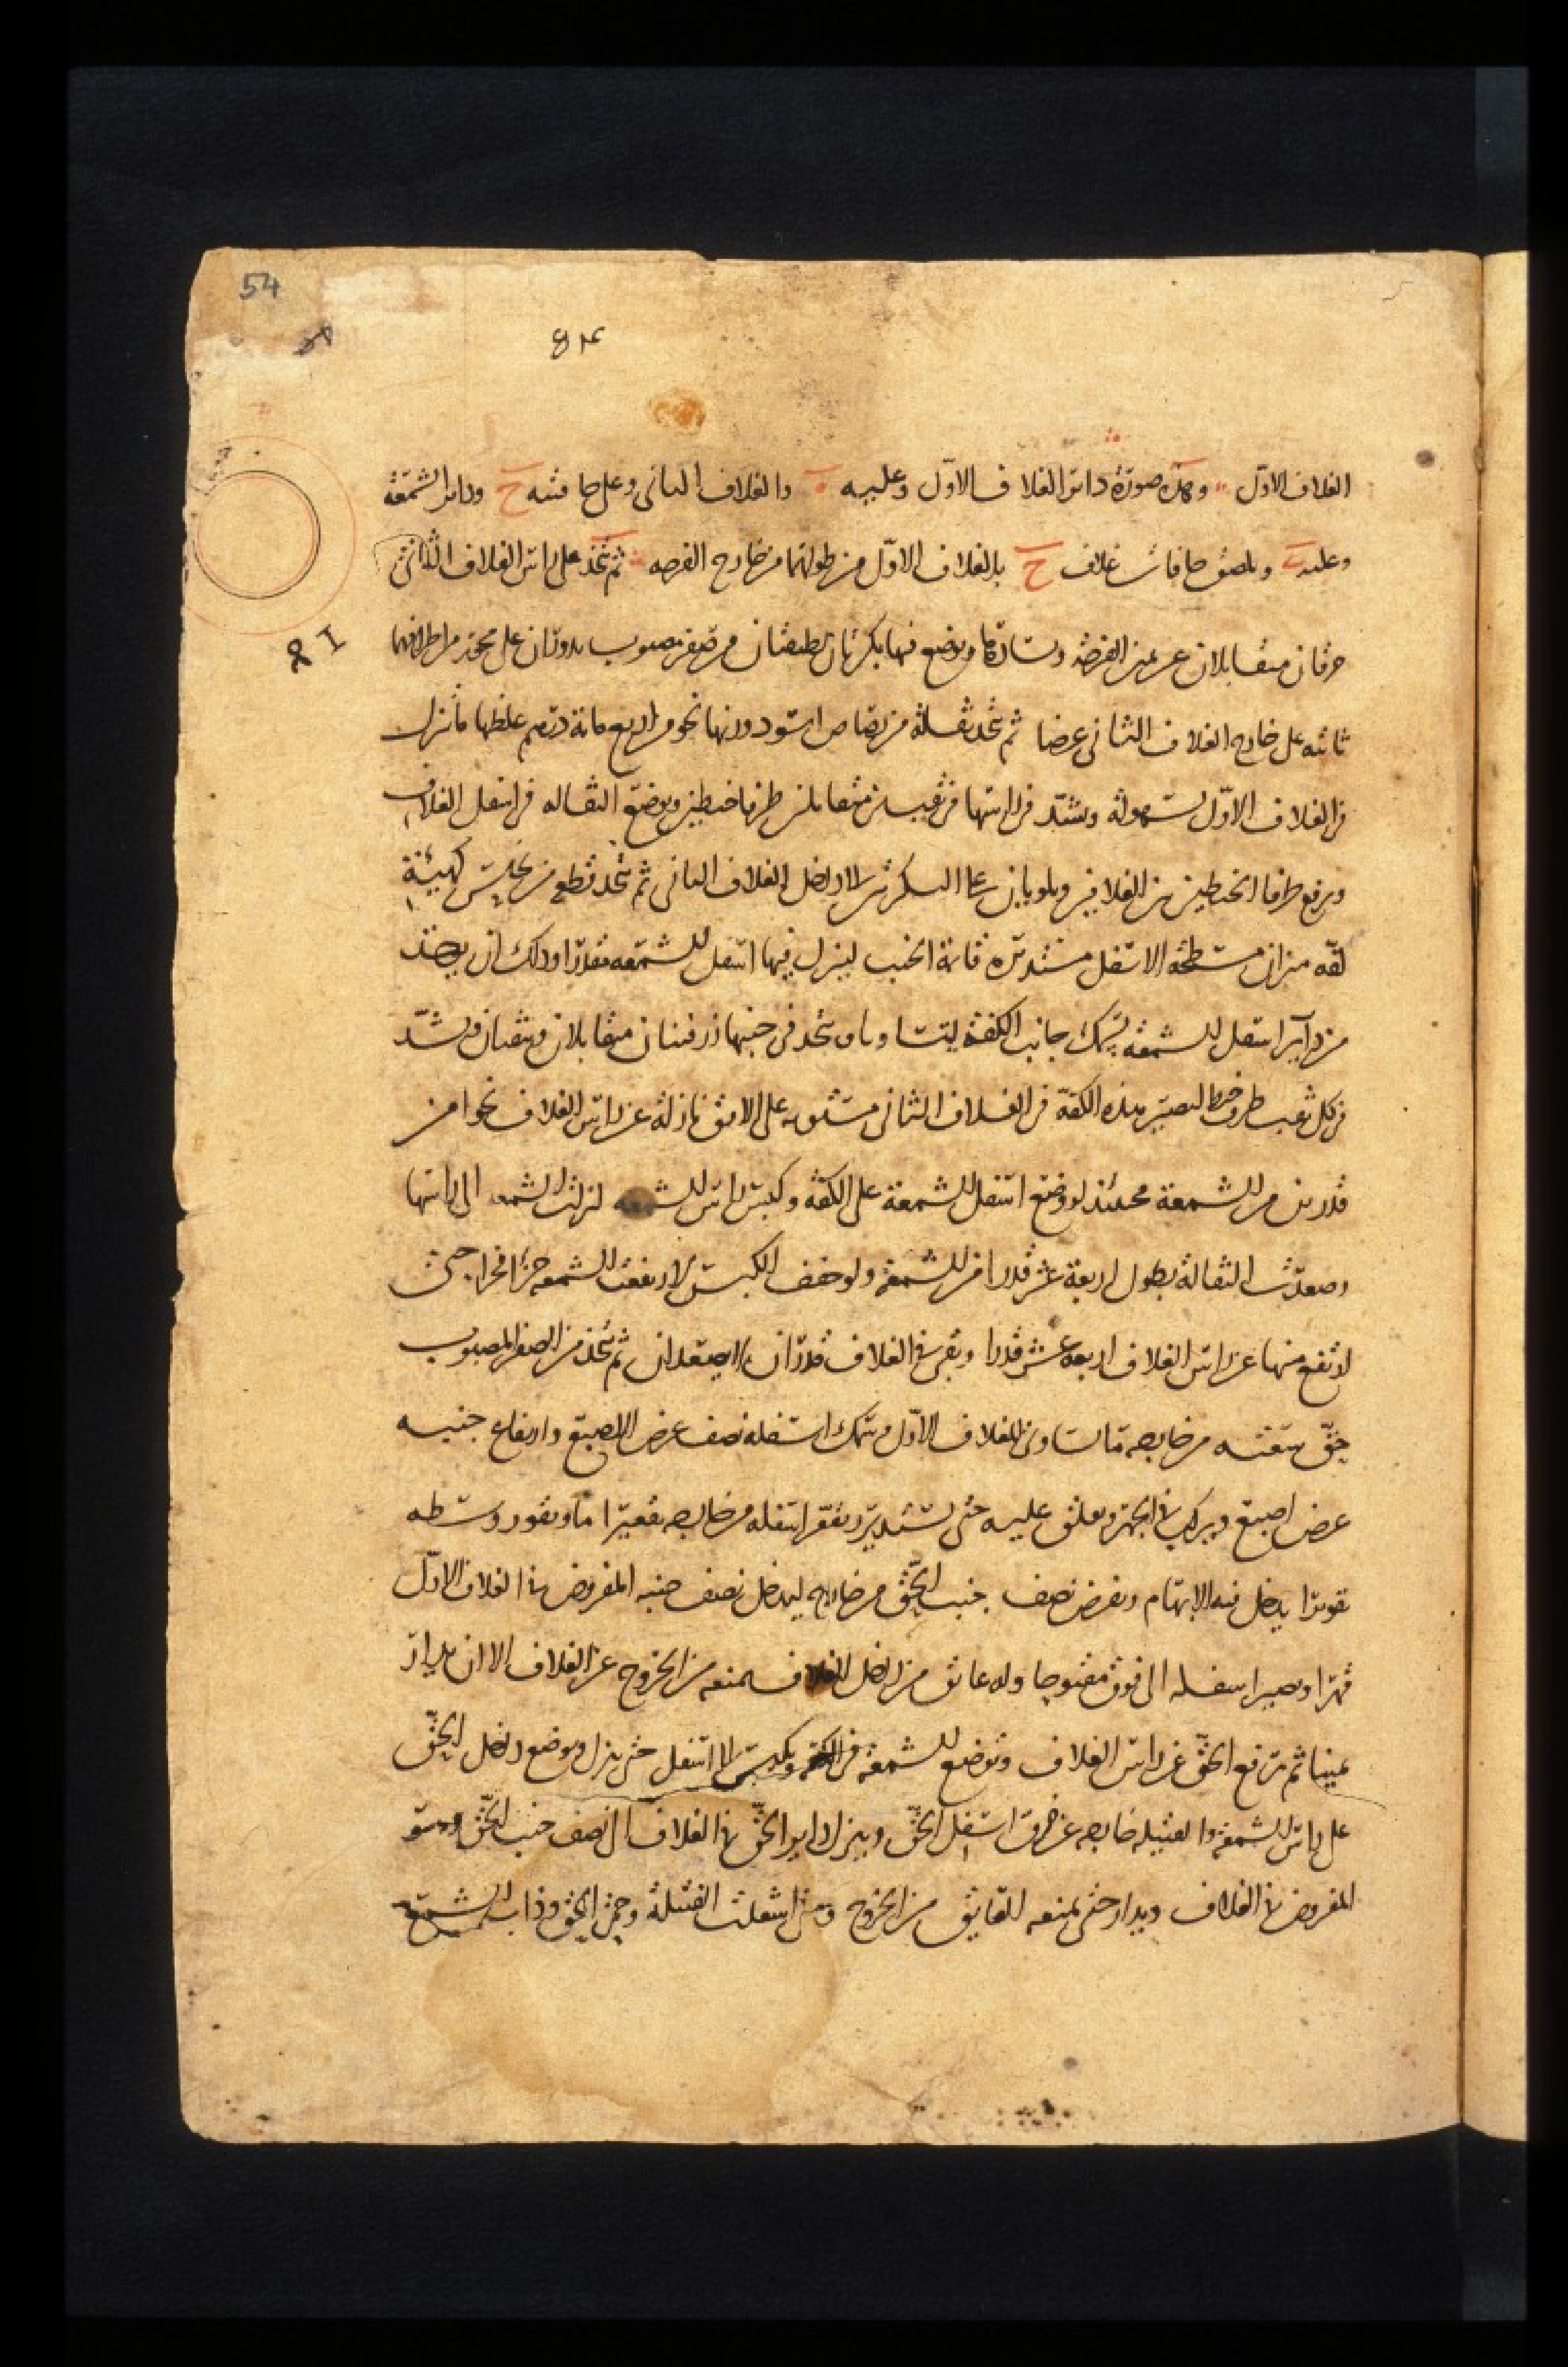 54
الغلاف الاول وهذه صورة راس الغلاف الاول وعليه ه والغلاف الثاني وعلى حافته ح وراس الشمعة
وعليه ويلصق حافات غلاف ح بالغلاف الاول من طولهما من خارج الفرضه ثم يتخذ على راس الغلاف الثاني
خرقان متقابلان عن يمين الفرضة ويسارها ويوضع فيها بكرتان لطيفتان من صفر مصبوب يدوران على محور من اطرافهما
ثابته على خارج الغلاف الثاني عرضا ثم يتخذ ثقالة من رصاص اسود وزنها نحو من اربع مائة درهم غلظها ما ينزل
في الغلاف الاول بسهولة ويشد في راسها في ثقبين متقابلين طرفا خيطين ويوضع الثقاله في اسفل الغلاف
ويرفع طرفا الخيطين بين الغلافين ويلويان على البكرتين الى داخل الغلاف الثاني ثم يتخذ قطع من نحاس كهيئة
كفه ميزان مسطحة الاسفل مستديرة قائمة الجنب لينزل فيها اسفل الشمعه مقدرا وذلك ان يوخذ
من داير اسفل الشمعه بسمك جانب الكفة ليتساويا ويتخذ في جنبها زرفنان متقابلان ويثقبان ويشد
في كل ثقب طرف خيط لتصير هذه الكفة في الغلاف الثاني مستويه على الافق نازلة عن راس الغلاف نحوا من
قدرين من الشمعة فحينئذ لو وضع اسفل الشمعة على الكفة وكبس راس الشمعه لنزلت الشمعه الى راسها
وصعدت الثقالة بطول اربعة عشر قدرا من الشمعة ولو خفف الكبس لارتفعت الشمعه جزا فجزا حتى
يرتفع منها عن راس الغلاف اربعة عشر قدرا ويبقى في الغلاف قدران لا يصعدان ثم يتخذ من الصفر المصبوب
حق سعته من خارجه ما يساوي الغلاف الاول وسمك اسفله نصف عرض الاصبع وارتفاع جنبه
عرض اصبع ويركب في الجهر ويعلق عليه حتى يستدير ويقعر اسفله من خارجه تقعيرا ما ويقور وسطه
تقويرا يدخل فيه الابهام ويفرض نصف جنب الحق من خارجه ليدخل نصف جنبه المفروض في الغلاف الاول
قهرا ويصير اسفله الى فوق مفتوحا وله عائق من داخل الغلاف يمنعه من الخروج عن الغلاف الا ان يدار
يمينا ثم يرفع الحق عن راس الغلاف وتوضع الشمعة في الكفه ويكبس الى اسفل حتى ينزل ويوضع داخل الحق
على راس الشمعة والفتيله خارجه عن خرق اسفل الحق وينزل داير الحق في الغلاف الى نصف جنب الحق وهو
المفروض في الغلاف ويدار حتى يمنعه العايق من الخروج ومتى اشعلت الفتيلة وحمي الحق وذاب الشمع